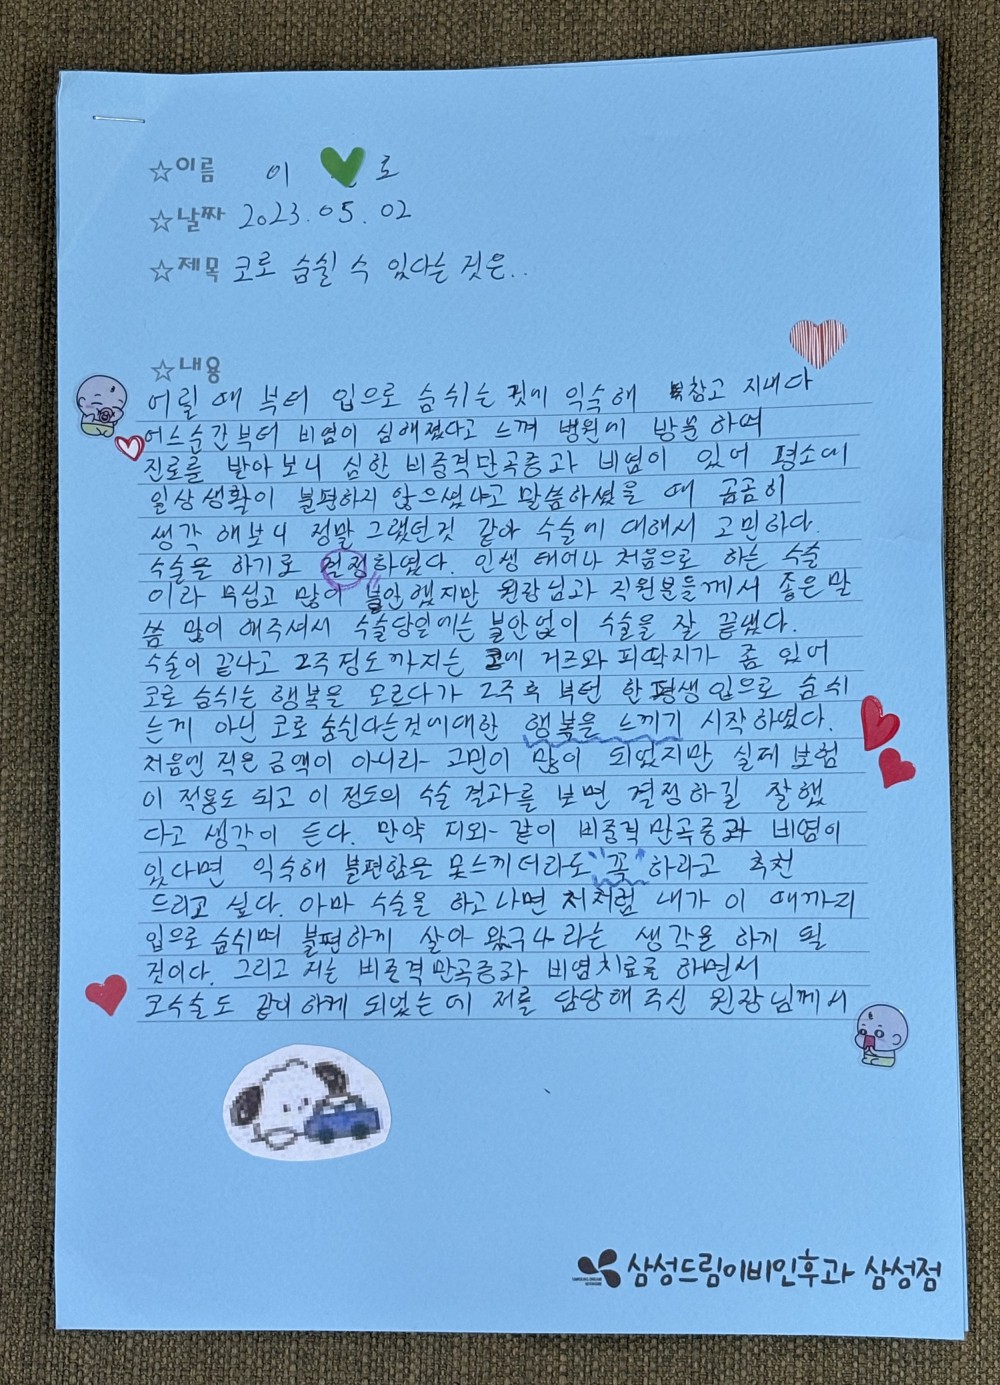 ☆이름 이 로
☆날짜 2023.05.02
☆제목 코로 숨쉴 수 있다는 것은..
☆내용
어릴 때 부터 입으로 숨 쉬는 것에 익숙해 참고 지내다
어느순간부터 비염이 심해졌다고 느껴 병원에 방문 하여
진료를 받아보니 심한 비중격만곡증과 비염이 있어 평소에
일상생활이 불편하지 않으셨냐고 말씀하셨을 때 곰곰히
생각 해보니 정말 그랬던것 같아 수술에 대해서 고민하다.
수술을 하기로 결정하였다. 인생 태어나 처음으로 하는 수술
이라 무섭고 많이 불안했지만 원장님과 직원분들께서 좋은 말
씀 많이 해주셔서 수술당일에는 불안없이 수술을 잘 끝냈다.
수술이 끝나고 2주정도까지는 코에 거즈와 피딱지가 좀 있어
코로 숨쉬는 행복을 모르다가 2주후 부턴 한평생 입으로 숨쉬
는게 아닌 코로 숨신다는것에대한 행복을 느끼기 시작하였다.
처음엔 적은 금액이 아니라 고민이 많이 되었지만 실제 보험
이 적용도 되고 이 정도의 수술 결과를 보면 결정하길 잘했
다고 생각이 든다. 만약 저와 같이 비중격만곡증과 비염이
있다면 익숙해 불편함을 못느끼더라도 "꼭" 하라고 추천
드리고 싶다. 아마 수술을 하고나면 저처럼 내가 이 때까지
입으로 숨쉬며 불편하게 살아 왔구나 라는 생각을 하게 될
것이다. 그리고 저는 비중격만곡증과 비염치료를 하면서
코수술도 같이 하게 되었는데 저를 담당해주신 원장님께서
삼성드림이비인후과 삼성점